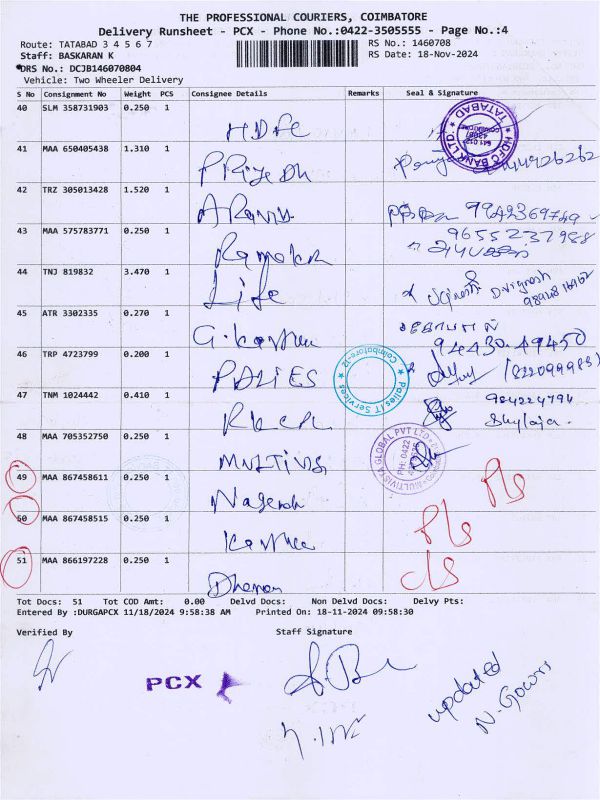 THE PROFESSIONAL COURIERS, COIMBATORE
Delivery Runsheet - PCX - Phone No.:0422-3505555 - Page No.:4
Route: TATABAD 3 4 5 6 7
RS No.: 1460708
Staff: BASKARAN K
RS Date: 18-Nov-2024
DRS No.: DCJB146070804
Vehicle: Two Wheeler Delivery
S No Consignment No Weight PCS Consignee Details Remarks Seal & Signature
40 SLM 358731903 0.250 1
HDFC
HDFC BANK LTD. TATABAD
41 MAA 650405438 1.310 1
42 TRZ 305013428 1.520 1
9942369749
43 MAA 575783771 0.250 1
9655237988
44 TNJ 819832 3.470 1
Life
D. Vignesh
45 ATR 3302335 0.270 1
G. Karthik
94430.49450
46 TRP 4723799 0.200 1
PALIES
Palies IT Services Coimbatore-12
47 TNM 1024442 0.410 1
984224794
Shylaja.
48 MAA 705352750 0.250 1
MULTIVIS
MULTIVISTA GLOBAL PVT LTD
PH: 0422
49 MAA 867458611 0.250 1
Nagesh
Pls
50 MAA 867458515 0.250 1
Pls
51 MAA 866197228 0.250 1
Tot Docs: 51 Tot COD Amt: 0.00 Delvd Docs: Non Delvd Docs: Delvy Pts:
Entered By :DURGAPCX 11/18/2024 9:58:38 AM Printed On: 18-11-2024 09:58:30
Verified By Staff Signature
PCX
updated
N. Gowri